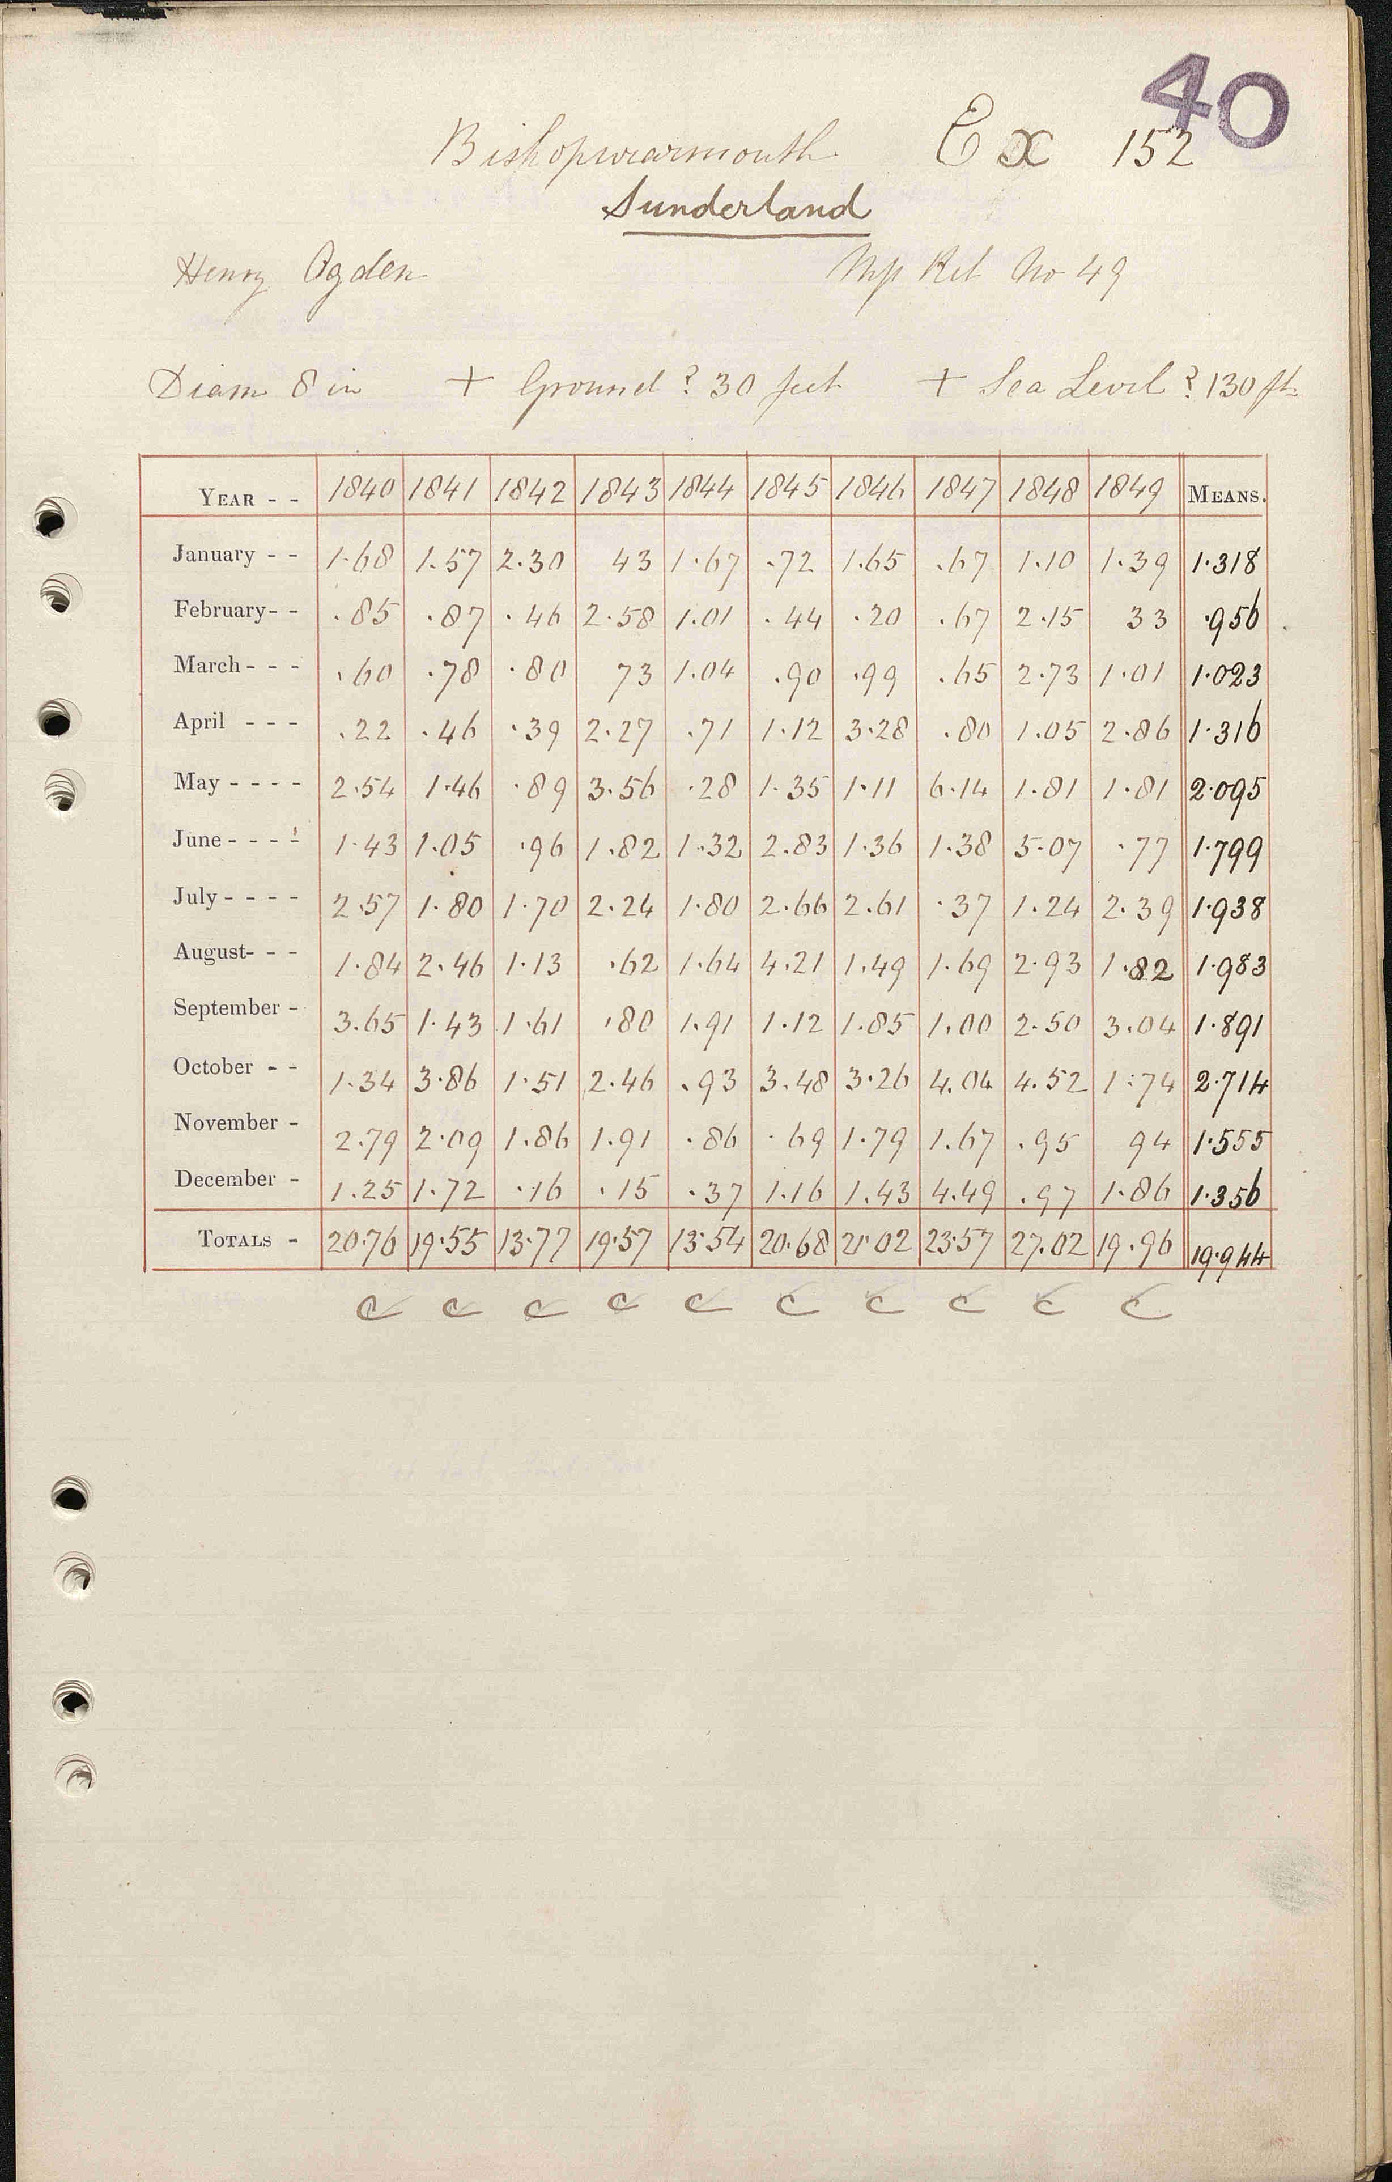 40
Bishopwearmouth Ex 152
Sunderland
Henry Ogden No 49
Diam 8 in + Ground ? 30 feet + Sea Level ? 130 ft
YEAR - - 1840 1841 1842 1843 1844 1845 1846 1847 1848 1849 MEANS.
January - - 1.68 1.57 2.30 43 1.67 .72 1.65 .67 1.10 1.39 1.318
February - - .85 .87 .46 2.58 1.01 .44 .20 .67 2.15 33 .956
March - - - .60 .78 .80 73 1.04 .90 .99 .65 2.73 1.01 1.023
April - - - .22 .46 .39 2.27 .71 1.12 3.28 .80 1.05 2.86 1.316
May - - - - 2.54 1.46 .89 3.56 .28 1.35 1.11 6.14 1.81 1.81 2.095
June - - - - 1.43 1.05 .96 1.82 1.32 2.83 1.36 1.38 5.07 .77 1.799
July - - - - 2.57 1.80 1.70 2.24 1.80 2.66 2.61 .37 1.24 2.39 1.938
August - - - 1.84 2.46 1.13 .62 1.64 4.21 1.49 1.69 2.93 1.82 1.983
September - 3.65 1.43 1.61 .80 1.91 1.12 1.85 1.00 2.50 3.04 1.891
October - - 1.34 3.86 1.51 2.46 .93 3.48 3.26 4.04 4.52 1.74 2.714
November - 2.79 2.09 1.86 1.91 .86 .69 1.79 1.67 .95 94 1.555
December - 1.25 1.72 .16 .15 .37 1.16 1.43 4.49 .97 1.86 1.356
TOTALS - 20.76 19.55 13.77 19.57 13.54 20.68 21.02 23.57 27.02 19.96 19.944
C C C C C C C C C C